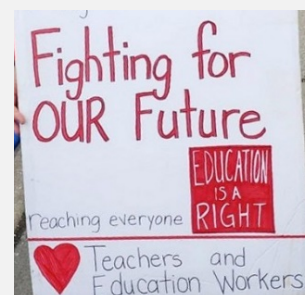 Fighting for
OUR Future
EDUCATION
IS A
RIGHT
reaching everyone
Teachers and
Education Workers